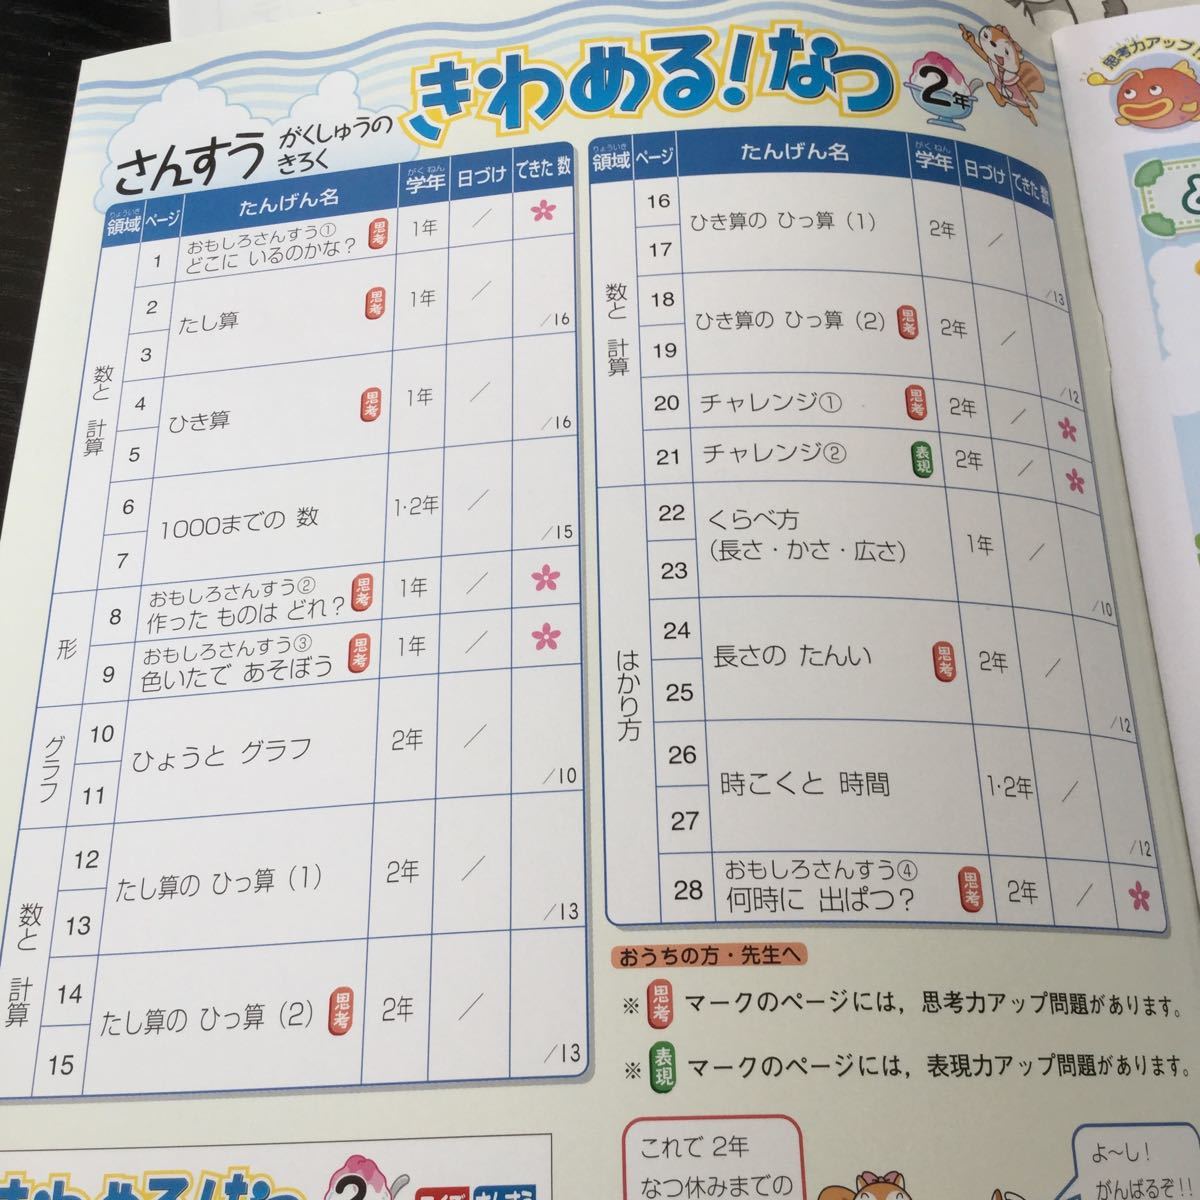 きわめる!なつ 2年
さんすう がくしゅうの きろく
領域 りょういき ページ たんげん名 学年 がくねん 日づけ できた数
数と 計算
1 おもしろさんすう① どこに いるのかな? 思考 1年 /
2 3 たし算 思考 1年 / /16
4 5 ひき算 思考 1年 / /16
6 7 1000までの 数 1・2年 / /15
形
8 おもしろさんすう② 作った ものは どれ? 思考 1年 /
9 おもしろさんすう③ 色いたで あそぼう 思考 1年 /
グラフ
10 11 ひょうと グラフ 2年 / /10
数と 計算
12 13 たし算の ひっ算(1) 2年 / /13
14 15 たし算の ひっ算(2) 思考 2年 / /13
領域 りょういき ページ たんげん名 学年 がくねん 日づけ できた数
数と 計算
16 17 ひき算の ひっ算(1) 2年 / /13
18 19 ひき算の ひっ算(2) 思考 2年 / /12
20 チャレンジ① 思考 2年 /
21 チャレンジ② 表現 2年 /
はかり方
22 23 くらべ方 (長さ・かさ・広さ) 1年 / /10
24 25 長さの たんい 思考 2年 / /12
26 27 時こくと 時間 1・2年 / /12
28 おもしろさんすう④ 何時に 出ぱつ? 思考 2年 /
おうちの方・先生へ
※ 思考 マークのページには,思考力アップ問題があります。
※ 表現 マークのページには,表現力アップ問題があります。
これで 2年
なつ休みまでの
よ〜し!
がんばるぞ!!
きわめる!なつ 2
クイズ さんすう
思考力アップ